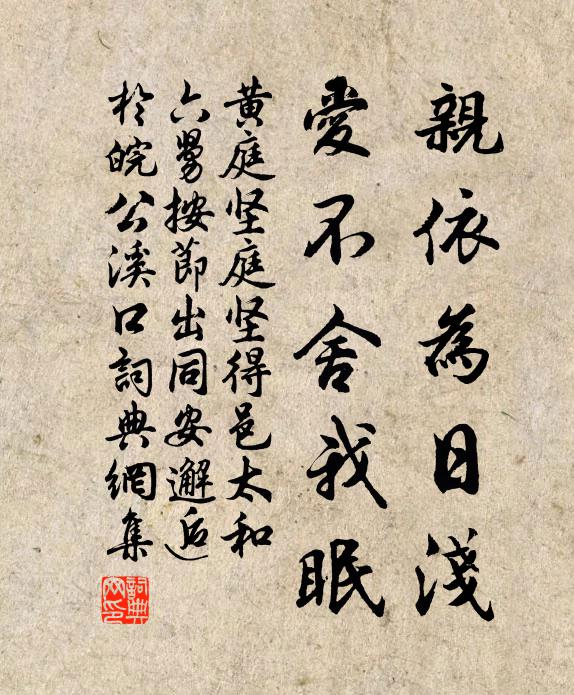 親依為日淺
愛不舍我眠
黄庭坚庭坚得邑太和
六舅按節出同安邂逅
於皖公溪口詞典網集